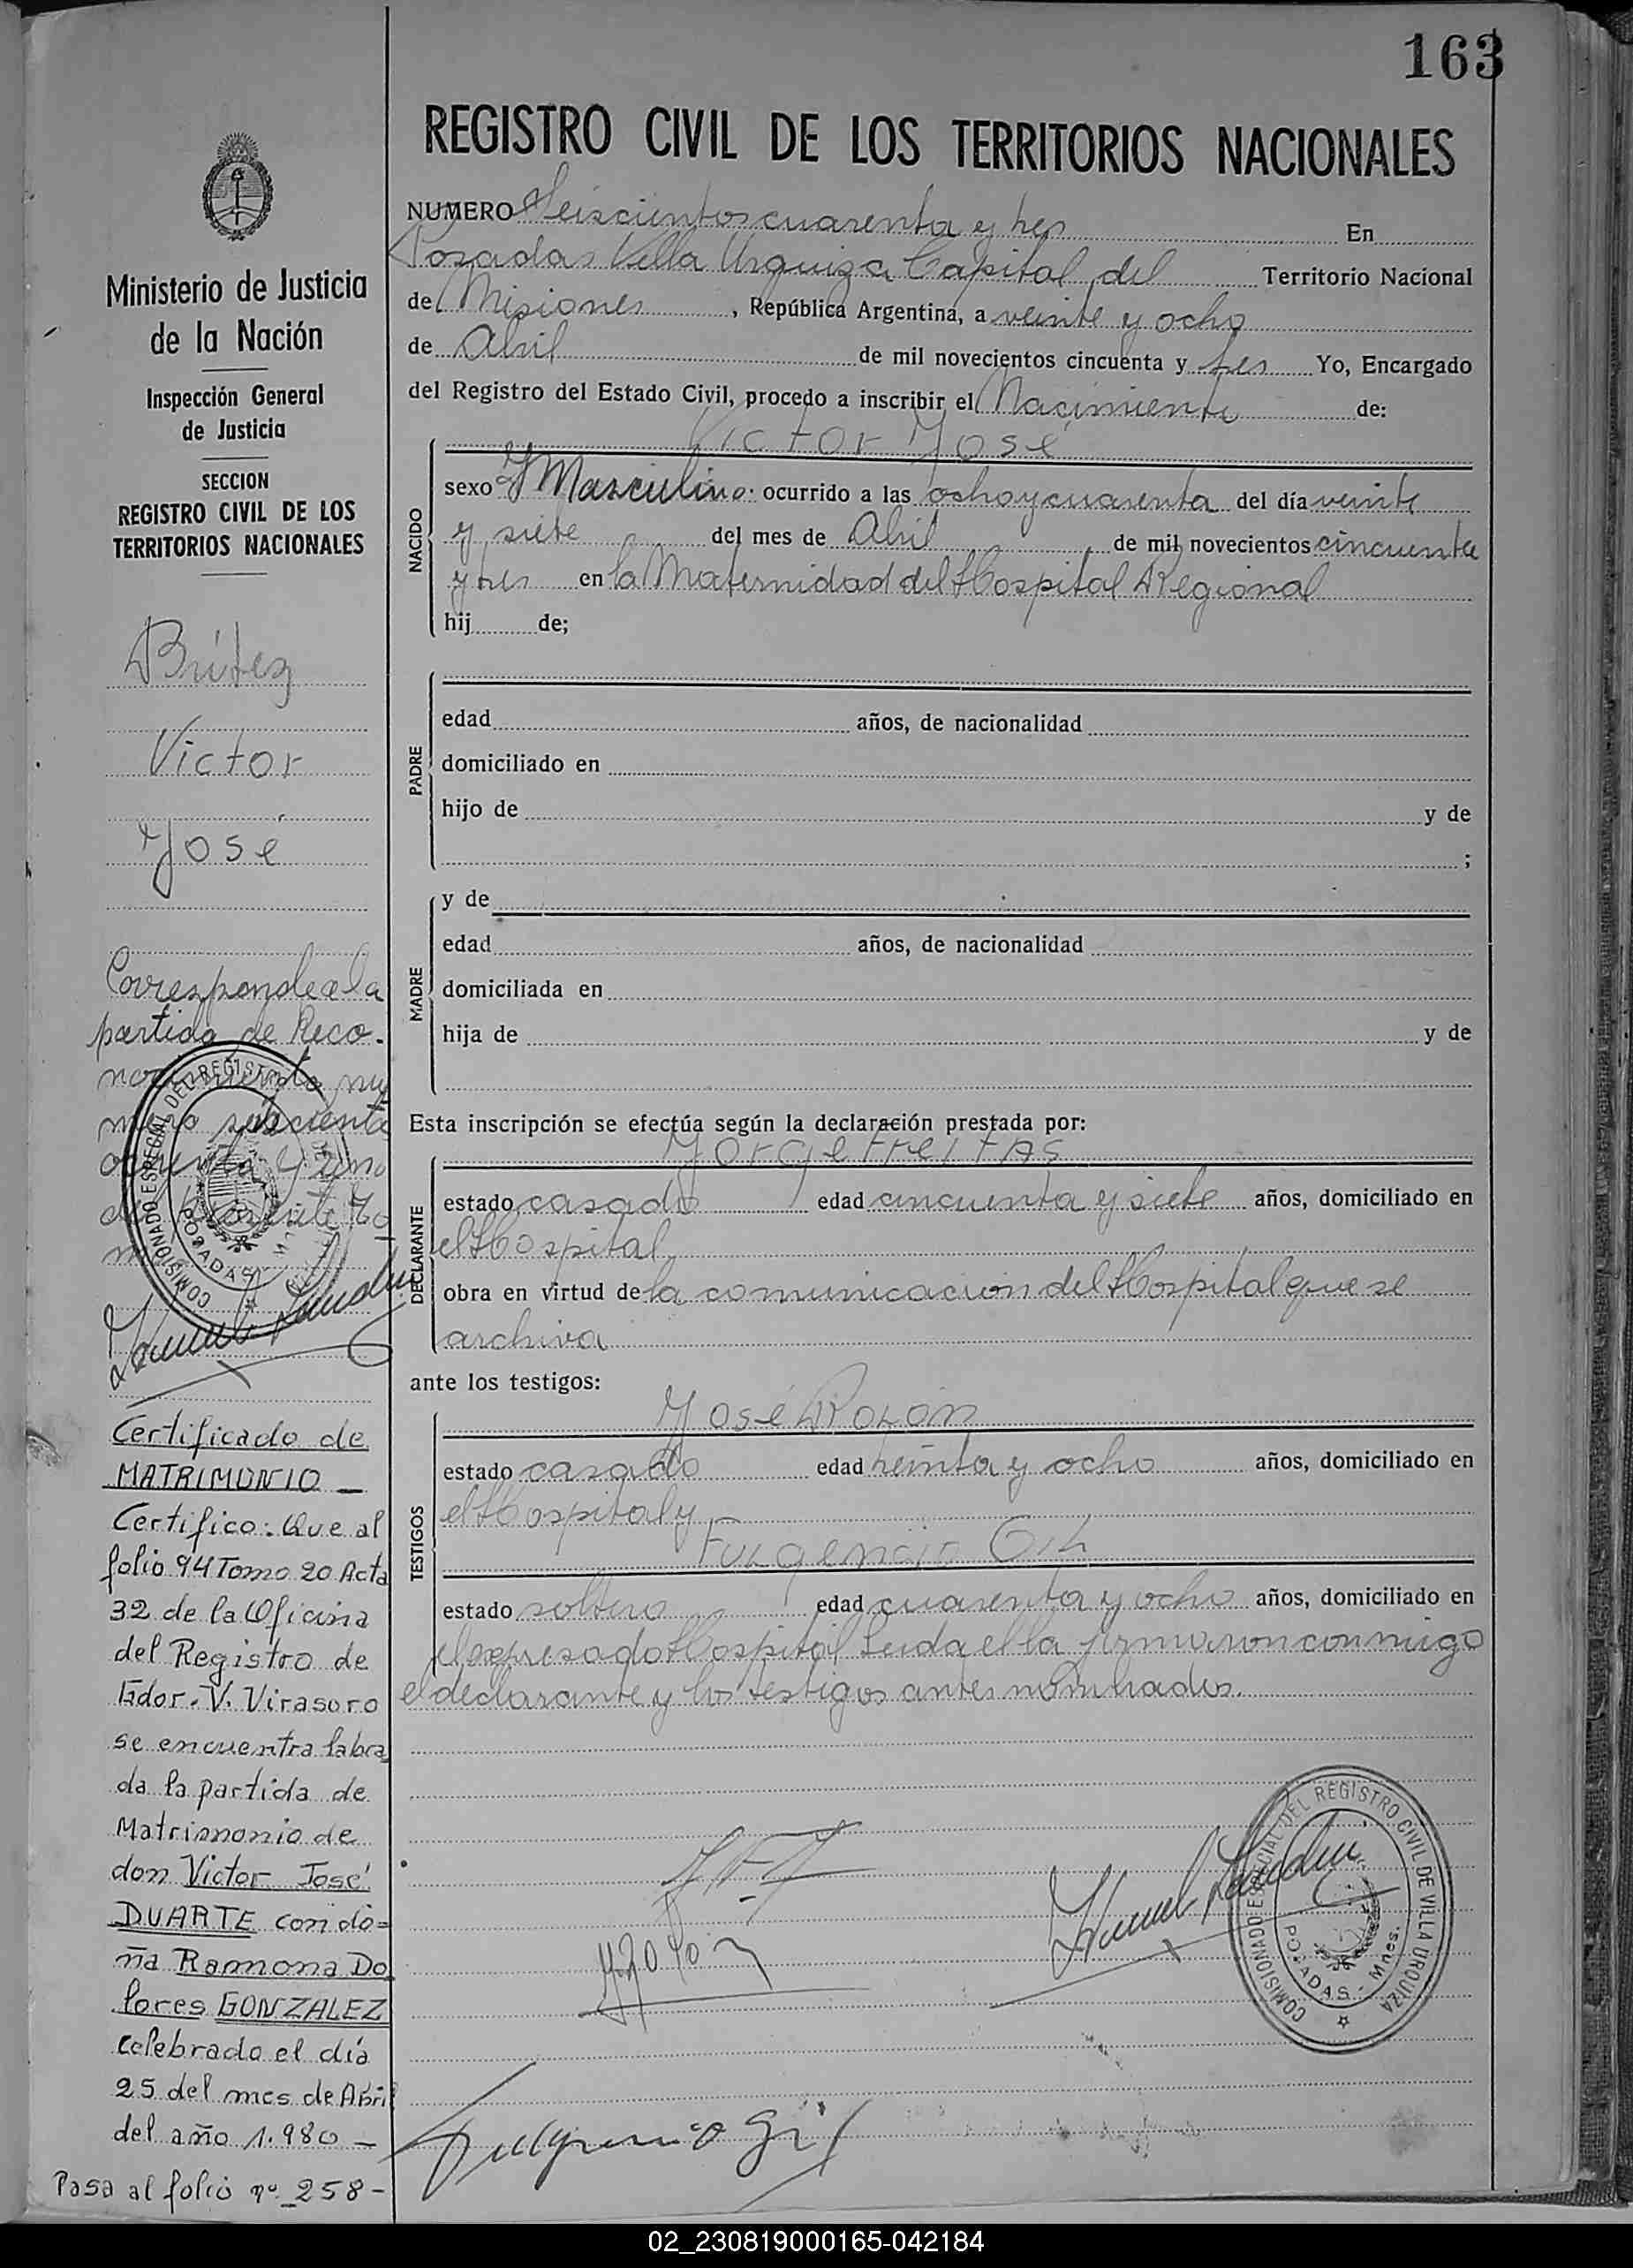 163
REGISTRO CIVIL DE LOS TERRITORIOS NACIONALES
NUMERO Seiscientos cuarenta y tres En
Posadas Villa Urquiza Capital del Territorio Nacional
de Misiones, República Argentina, a veinte y ocho
de Abril de mil novecientos cincuenta y tres Yo, Encargado
del Registro del Estado Civil, procedo a inscribir el Nacimiento de:
Victor José
NACIDO
sexo Masculino ocurrido a las ocho y cuarenta del día veinte
y siete del mes de Abril de mil novecientos cincuenta
y tres en la Maternidad del Hospital Regional
hij de;
PADRE
edad años, de nacionalidad
domiciliado en
hijo de y de
;
MADRE
y de
edad años, de nacionalidad
domiciliada en
hija de y de
Esta inscripción se efectúa según la declaración prestada por:
Jorge Freitas
DECLARANTE
estado casado edad cincuenta y siete años, domiciliado en
el Hospital
obra en virtud de la comunicación del Hospital que se
archiva
ante los testigos:
José Rolón
TESTIGOS
estado casado edad treinta y ocho años, domiciliado en
el Hospital y
Fulgencio Gil
estado soltero edad cuarenta y ocho años, domiciliado en
el expresado Hospital Leida el la firmaron conmigo
el declarante y los testigos antes nombrados.
Fulgencio Gil
COMISIONADO ESPECIAL DEL REGISTRO CIVIL DE VILLA URQUIZA
POSADAS - Mnes.
Ministerio de Justicia
de la Nación
Inspección General
de Justicia
SECCION
REGISTRO CIVIL DE LOS
TERRITORIOS NACIONALES
Britez
Victor
José
Corresponde a la
partida de Reco-
nocimiento nu
mero seiscienta
y uno
del presente To
mo
COMISIONADO ESPECIAL DEL REGISTRO
POSADAS
Certificado de
MATRIMONIO —
Certifico: Que al
folio 94 Tomo 20 Acta
32 de la Oficina
del Registro de
Gdor. V. Virasoro
se encuentra labra
da la partida de
Matrimonio de
don Victor José
DUARTE con do=
ña Ramona Do
lores GONZALEZ
celebrado el día
25 del mes de Abril
del año 1.980 —
Pasa al folio nº 258 -
02_230819000165-042184